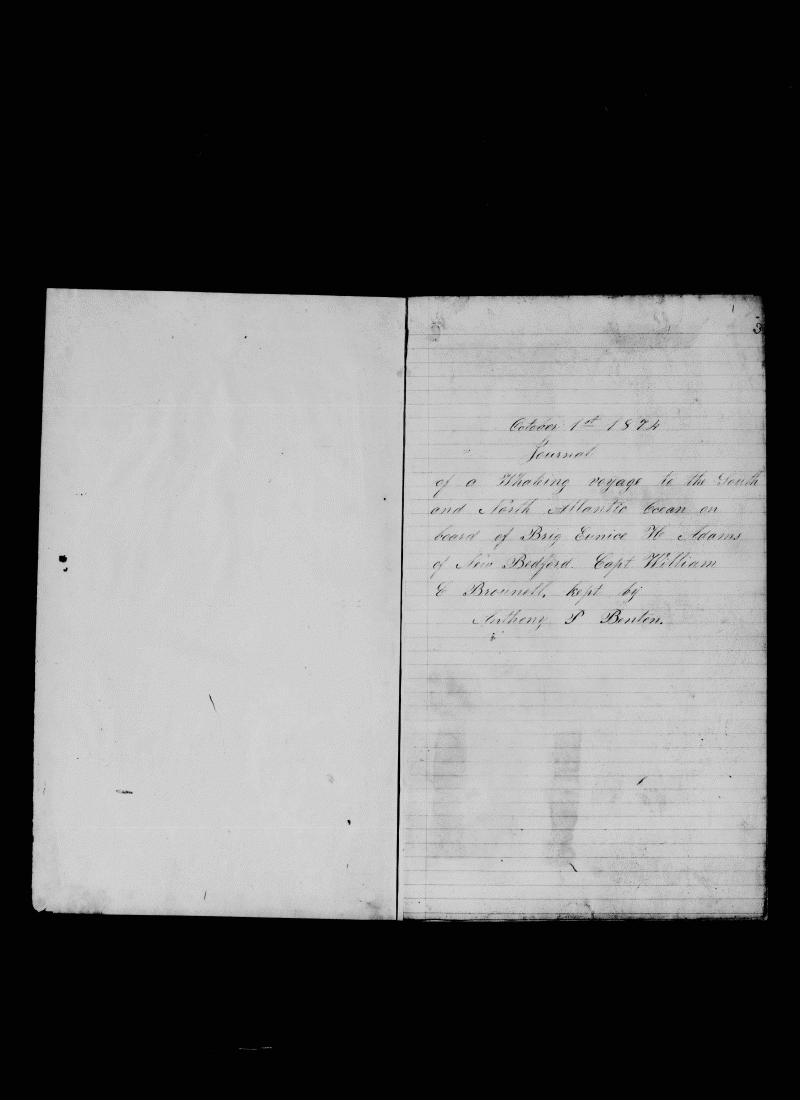 3
October 1st 1874
Journal
of a Whaling voyage to the South
and North Atlantic Ocean on
board of Brig Eunice H Adams
of New Bedford. Capt William
E Brownell, kept by
Anthony P Benton.